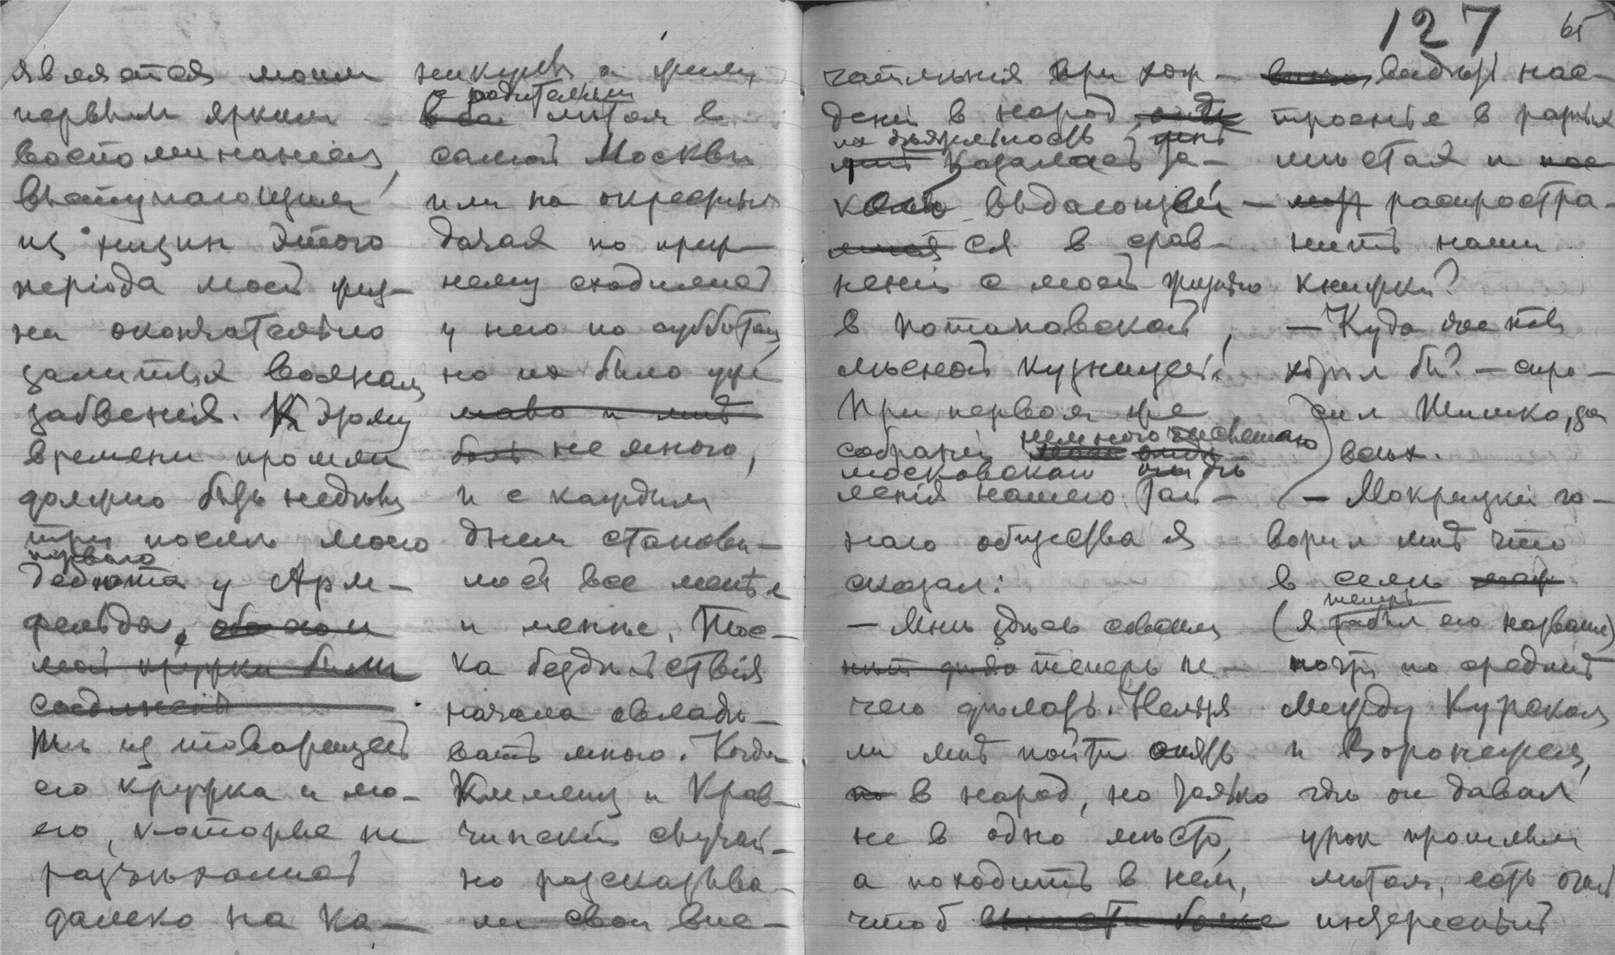 127
65
является моим
первым ярким
воспоминаніем,
выступающим
из пучин этого
періода моей жиз-
ни окончательно
залитыя волнам
забвенія. К этому
времени прошли
должно быть недѣли
три послѣ моего
перваго
дебюта у Арм-
фельда,
мой кружки были
соединены
Тѣ из товарищей
его кружка и мо-
его, которые не
разъѣхались
далеко на ка-
никулы и жили
с родителями
лѣтом в
самой Москвѣ
или на окрестных
дачах по преж-
нему сходились
у него по субботам,
но их было уже
мало и мнѣ
не много,
и с каждым
днем станови-
лось все менѣе
и менѣе. Тос-
ка бездѣйствія
начала овладѣ-
вать мною. Когда
Клеменц и Крав-
чинскій случай-
но разсказыва-
ли свои впе-
чатлѣнія при хож-
деніи в народ,
их дѣятельность мнѣ
казалась та-
кой выдающей-
ся в срав-
неніи с моей жизнью
в Потаповской
лѣсной кузницѣ!
При первом же
собраніи немного
московскаго отдѣ-
ленія нашего тай-
наго общества я
сказал:
— Мнѣ здѣсь совсѣм
теперь не-
чего дѣлать. Нельзя
ли мнѣ пойти опять
в народ, но только
не в одно мѣсто,
а походить в нем,
чтоб внести более
видѣть нас-
троенье в разных
мѣстах и
распростра-
нить наши
книжки?
— Куда же ты
хотѣл бы? — спро-
сил Шишко,
— Мокрицкій го-
ворил мнѣ что
в селѣ
теперь
(я забыл его названіе)
почти по срединѣ
между Курском
и Воронежем,
гдѣ он давал
урок прошлым
лѣтом, есть очень
интересный